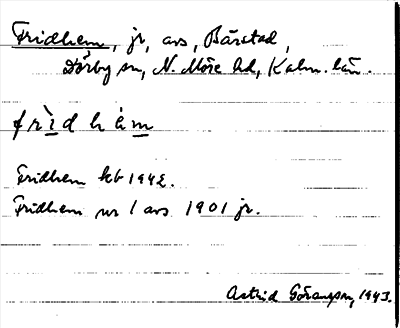 Fridhem, jr, avs, Bårstad,
Dörby sn, N. Möre hd, Kalm. län.
frìdhèm
Fridhem kb 1942.
Fridhem nr 1 avs 1901 jr.
Astrid Göransson, 1943.